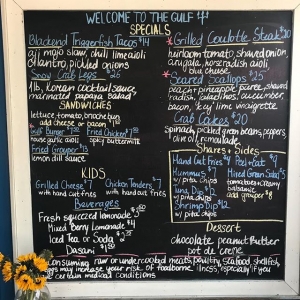 WELCOME TO THE GULF
SPECIALS
Blackened Triggerfish Tacos $14
aji mojo slaw, chili lime aioli
cilantro, pickled onions
Snow Crab Legs $26
1 lb, Korean cocktail sauce,
marinated papaya salad
SANDWICHES
lettuce, tomato, brioche bun
add cheese or bacon $1
Gulf Burger
house garlic aioli
Fried Chicken
spicy buttermilk
Fried Grouper
lemon dill sauce
KIDS
Grilled Cheese $7
with hand cut fries
Chicken Tenders $7
with hand cut fries
Beverages
Fresh Squeezed Lemonade
Mixed Berry Lemonade $4
Iced Tea or Soda $2
Dasani
* Grilled Coulotte Steak $20
heirloom tomato, shaved onion,
arugula, horseradish aioli
blue cheese
* Seared Scallops $25
peach + pineapple puree, shaved
radish, cucumber,
bacon, key lime vinaigrette
Crab Cakes $20
spinach, pickled green beans, peppers,
olive oil, remoulade
Shares + Sides
Hand Cut Fries $4
Peel + Eat
Hummus $7
w/ pita chips
Mixed Green Salad
tomatoes + creamy
balsamic
add grouper $8
Tuna Dip
w/ pita chips
Shrimp Dip
w/ pita chips
Dessert
chocolate peanut butter
pot de creme
Consuming raw or undercooked meats, poultry, seafood, shellfish,
eggs may increase your risk of foodborne illness, especially if you
certain medical conditions